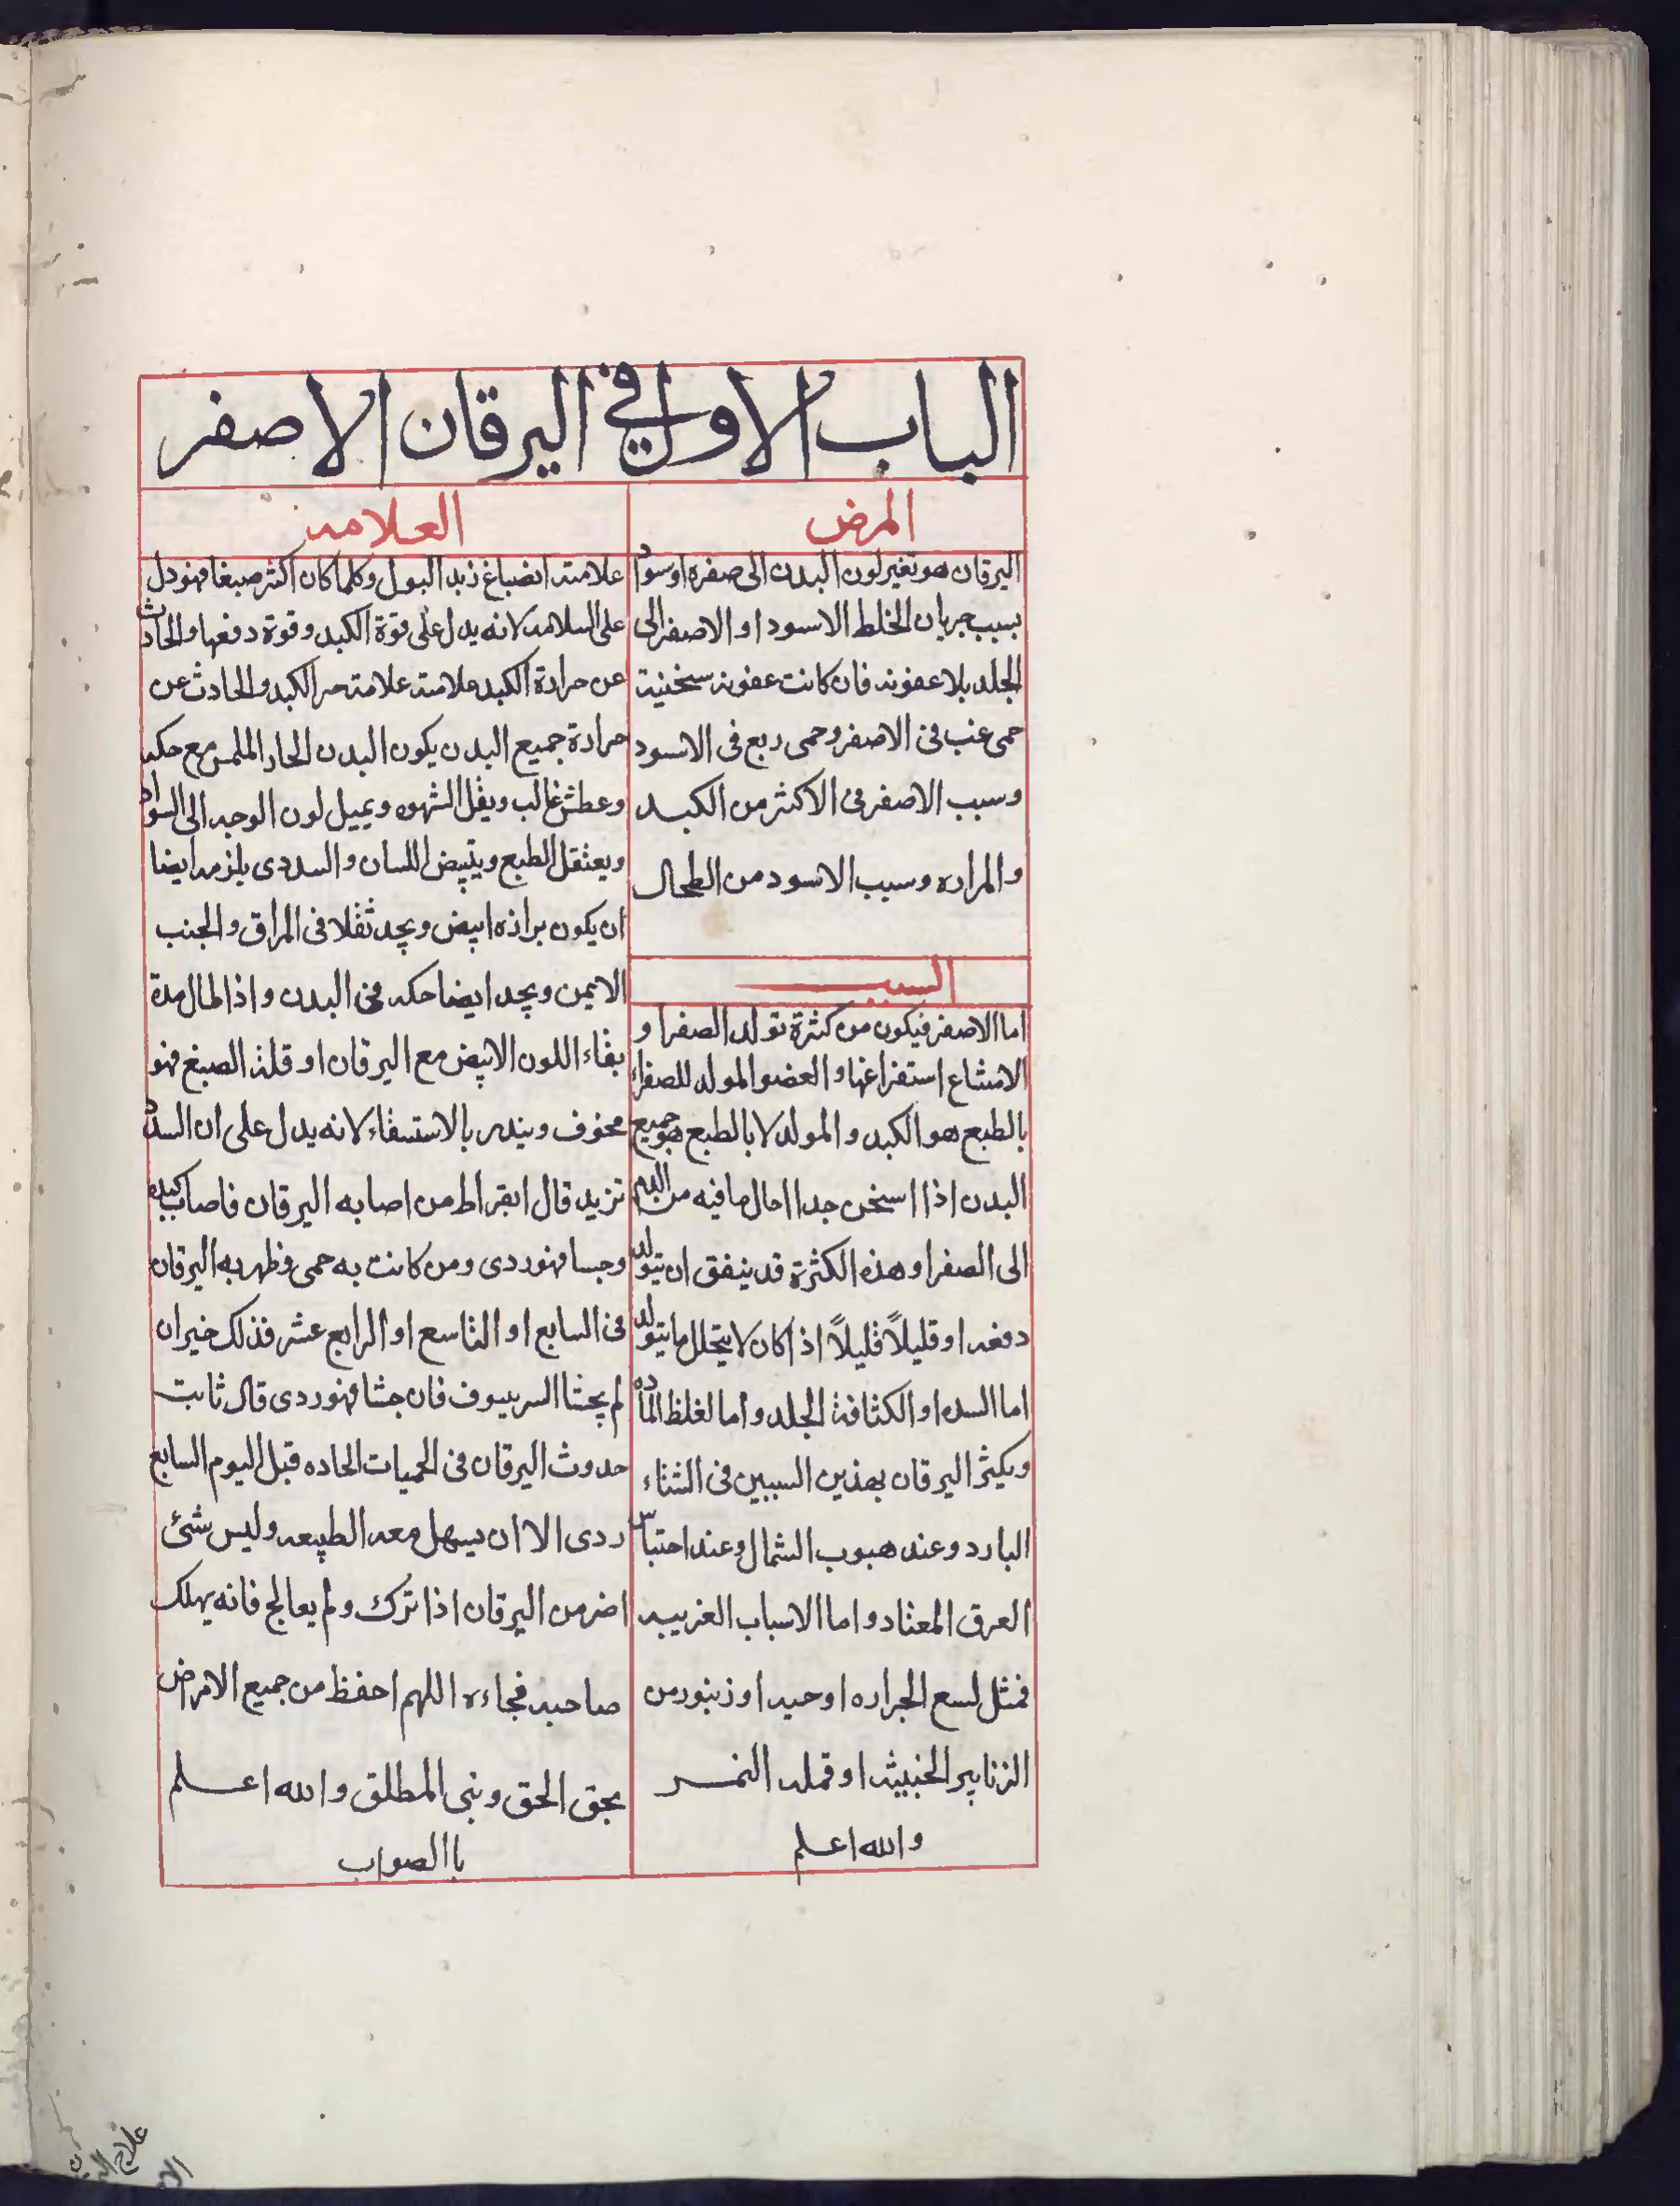 الباب الاول في اليرقان الاصفر
المرض
اليرقان هو تغير لون البدن الى صفره او سواد
بسبب جريان الخلط الاسود او الاصفر الى
الجلد بلا عفونه فان كانت عفونه سخنية
حمى غب فى الاصفر وحمى ربع فى الاسود
وسبب الاصفر فى الاكثر من الكبد
والمراره وسبب الاسود من الطحال
السبب
اما الاصفر فيكون من كثرة تولد الصفرا و
الامتناع استفراغها والعضو المولد للصفراء
بالطبع هو الكبد والمولد لا بالطبع هو جميع
البدن اذا اسخن جدا احال ما فيه من الدم
الى الصفرا وهذه الكثرة قد يتفق ان يتولد
دفعه او قليلاً قليلاً اذا كان لا يتحلل ما يتولد
اما السده او الكثافة الجلد واما لغلظ الماده
ويكثر اليرقان بهذين السببين فى الشتاء
البارد وعند هبوب الشمال وعند احتباس
العرق المعتاد واما الاسباب الغريبه
فمثل لسع الجراره او حيه او زنبور من
الزنابير الخبيثه او قمله النمر
والله اعلم
العلامه
علامته انصباغ زبد البول وكلما كان اكثر صبغا فهو دل
على السلامه لانه يدل على قوة الكبد وقوة دفعها والحادث
عن حرارة الكبد علامته علامة حر الكبد والحادث عن
حرارة جميع البدن يكون البدن الحار الملمس مع حكه
وعطش غالب ويقل الشهوه ويميل لون الوجه الى السواد
ويعتقل الطبع ويتبيض اللسان والسددى يلزمه ايضا
ان يكون برازه ابيض ويجد ثقلا فى المراق والجنب
الايمن ويجد ايضا حكه فى البدن واذا طال مدة
بقاء اللون الابيض مع اليرقان او قلة الصبغ فهو
مخوف وينذر بالاستسقاء لانه يدل على ان السدد
تزيد قال ابقراط من اصابه اليرقان فاصاب كبده
وجسا فهو ردى ومن كانت به حمى وظهر به اليرقان
فى السابع او التاسع او الرابع عشر فذلك خير ان
لم يجشا السرسيوف فان جشا فهو ردى قال ثابت
حدوث اليرقان فى الحميات الحاده قبل اليوم السابع
ردى الا ان يسهل معه الطبيعه وليس شئ
اضر من اليرقان اذا ترك ولم يعالج فانه يهلك
صاحبه فجاءه اللهم احفظ من جميع الامراض
بحق الحق ونبى المطلق والله اعلم
باالصواب